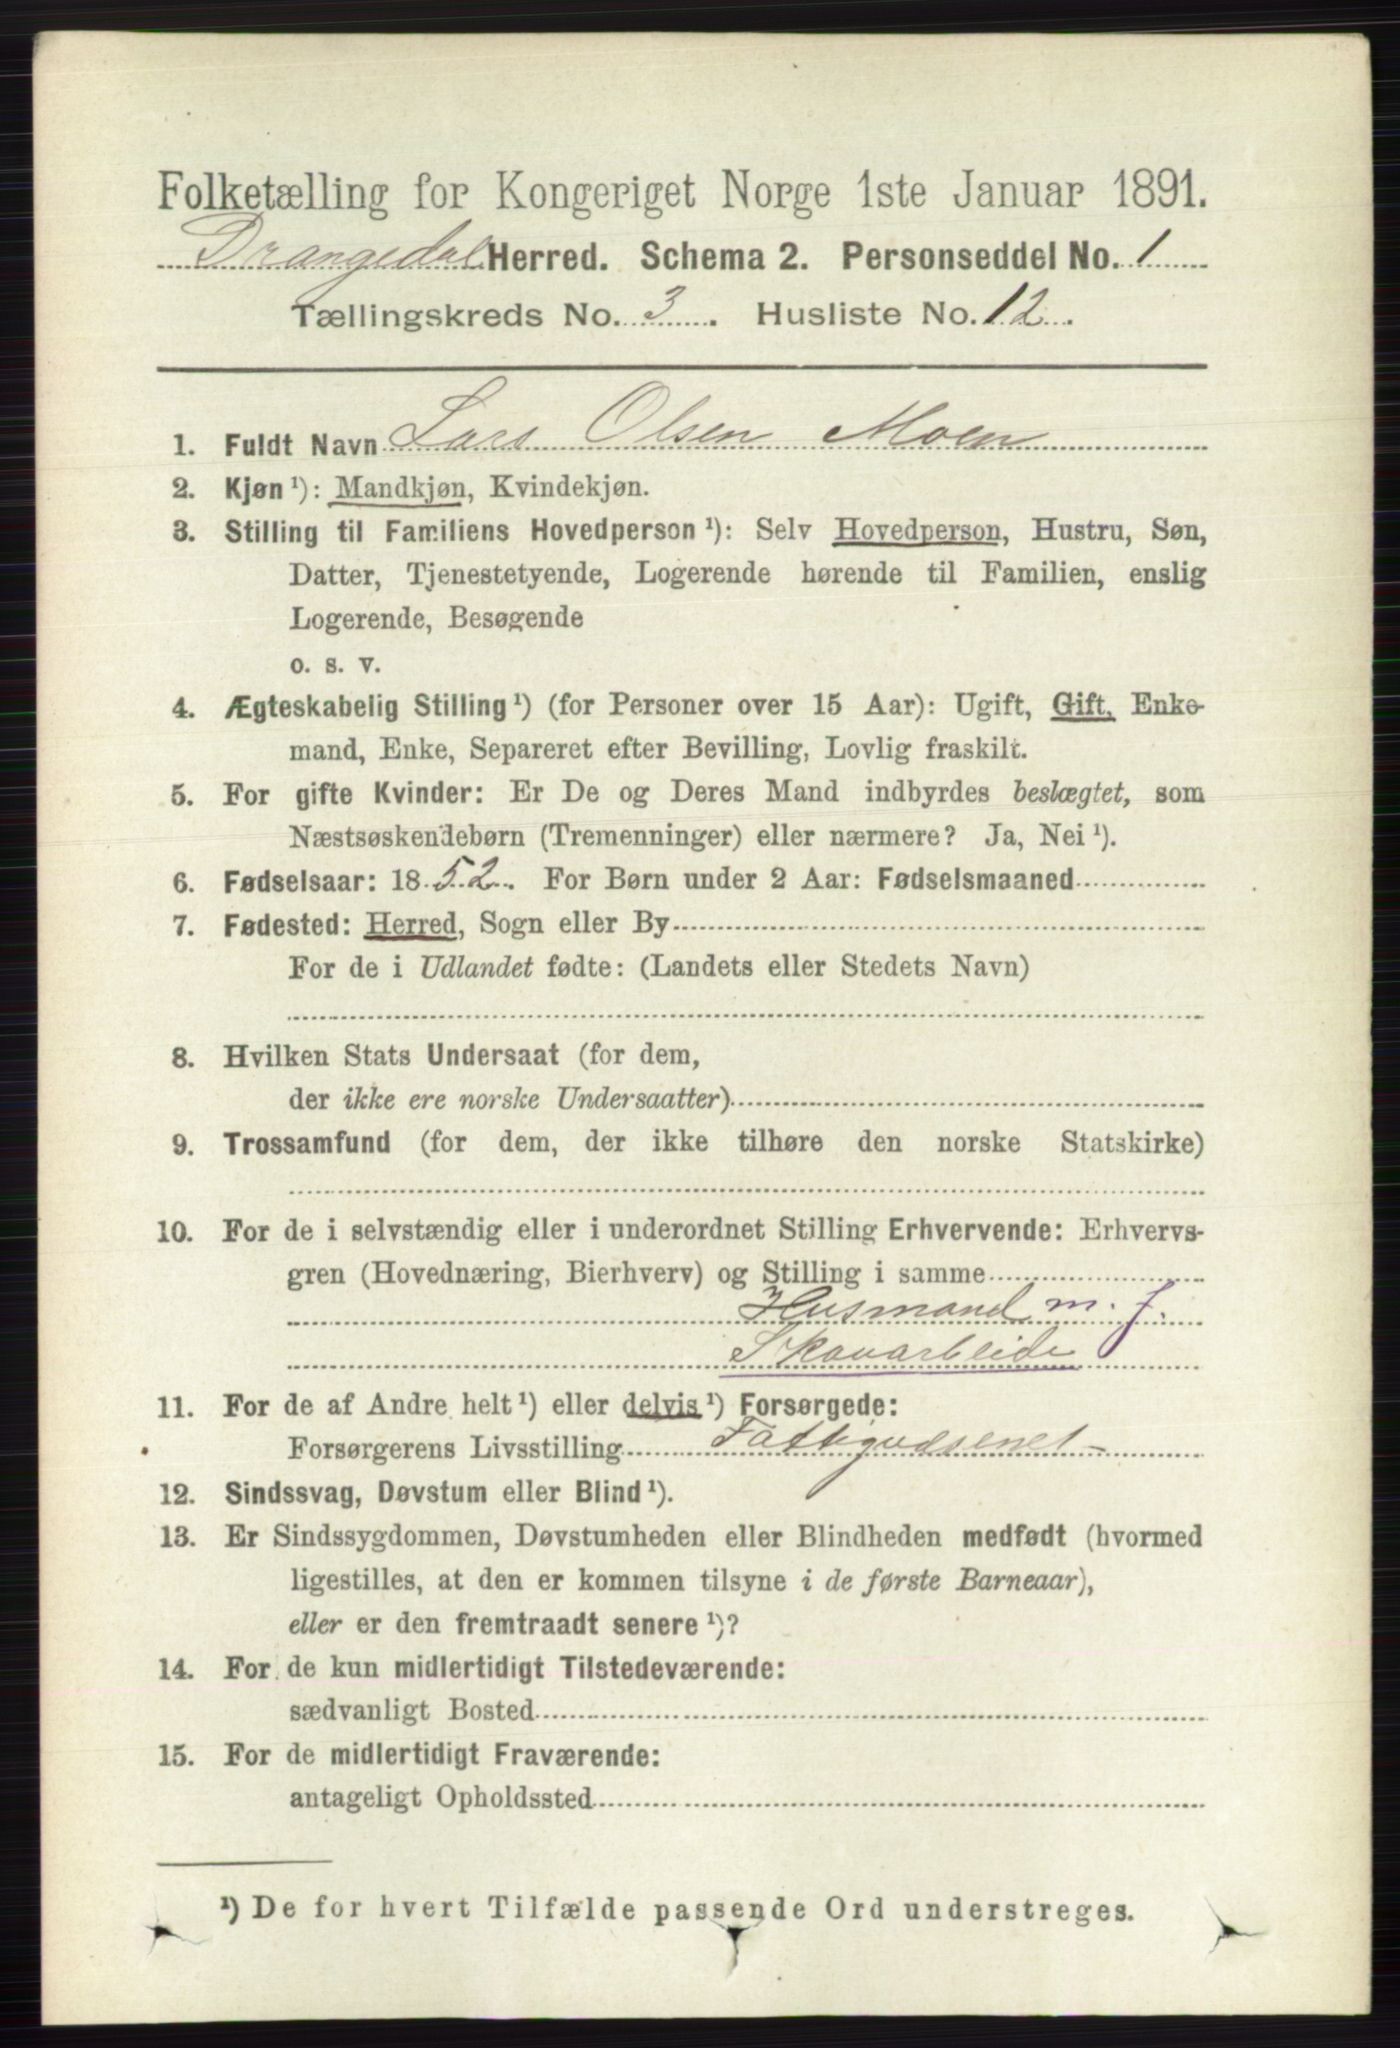 Folketælling for Kongeriget Norge 1ste Januar 1891.
Drangedal Herred. Schema 2. Personseddel No. 1
Tællingskreds No. 3. Husliste No. 12.
1. Fuldt Navn Lars Olsen Moen
2. Kjøn ¹): Mandkjøn, Kvindekjøn.
3. Stilling til Familiens Hovedperson ¹): Selv Hovedperson, Hustru, Søn,
Datter, Tjenestetyende, Logerende hørende til Familien, enslig
Logerende, Besøgende
o. s. v.
4. Ægteskabelig Stilling ¹) (for Personer over 15 Aar): Ugift, Gift, Enke-
mand, Enke, Separeret efter Bevilling, Lovlig fraskilt.
5. For gifte Kvinder: Er De og Deres Mand indbyrdes beslægtet, som
Næstsøskendebørn (Tremenninger) eller nærmere? Ja, Nei ¹).
6. Fødselsaar: 1852. For Børn under 2 Aar: Fødselsmaaned
7. Fødested: Herred, Sogn eller By
For de i Udlandet fødte: (Landets eller Stedets Navn)
8. Hvilken Stats Undersaat (for dem,
der ikke ere norske Undersaatter)
9. Trossamfund (for dem, der ikke tilhøre den norske Statskirke)
10. For de i selvstændig eller i underordnet Stilling Erhvervende: Erhvervs-
gren (Hovednæring, Bierhverv) og Stilling i samme
Husmand m. J.
Skovarbeide
11. For de af Andre helt ¹) eller delvis ¹) Forsørgede:
Forsørgerens Livsstilling Fattigvæsenet
12. Sindssvag, Døvstum eller Blind ¹).
13. Er Sindssygdommen, Døvstumheden eller Blindheden medfødt (hvormed
ligestilles, at den er kommen tilsyne i de første Barneaar),
eller er den fremtraadt senere ¹)?
14. For de kun midlertidigt Tilstedeværende:
sædvanligt Bosted
15. For de midlertidigt Fraværende:
antageligt Opholdssted
¹) De for hvert Tilfælde passende Ord understreges.